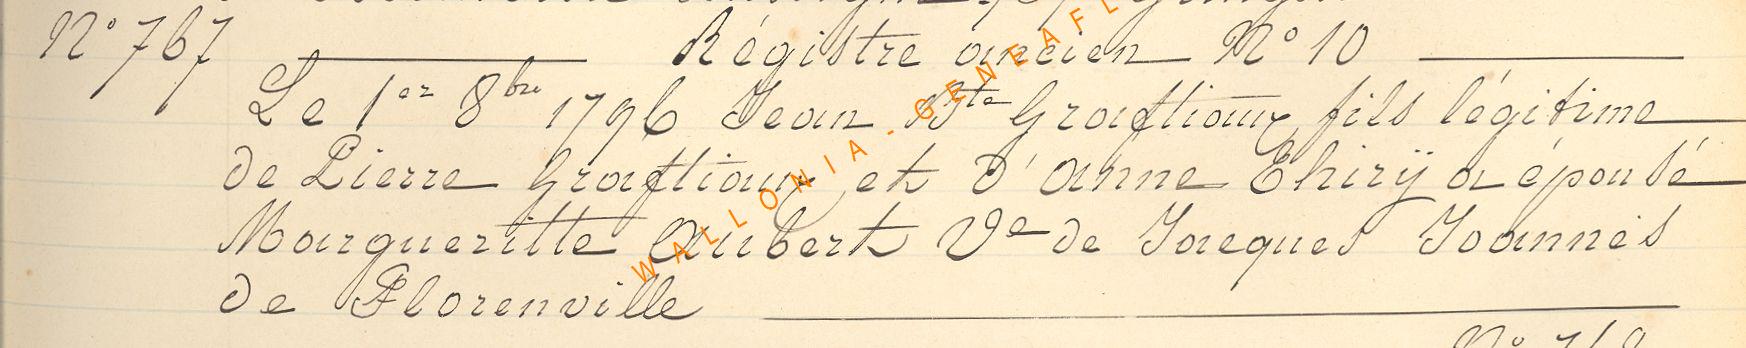 N° 767 Régistre ancien N° 10
Le 1er 8bre 1796 Jean Bte Graftiaux fils légitime
de Pierre Graftiaux et d'anne Thirÿ a épousé
Margueritte Aubert Ve de Jacques Joannès
de Florenville
WALLONIA.GENEAFL